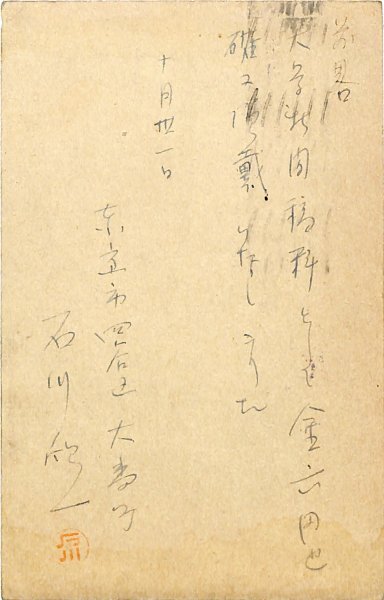 前略
大学新聞稿料として金六円也
確に頂戴いたしました
十月卅一日
東京市四谷区大番町
石川欣一
石川